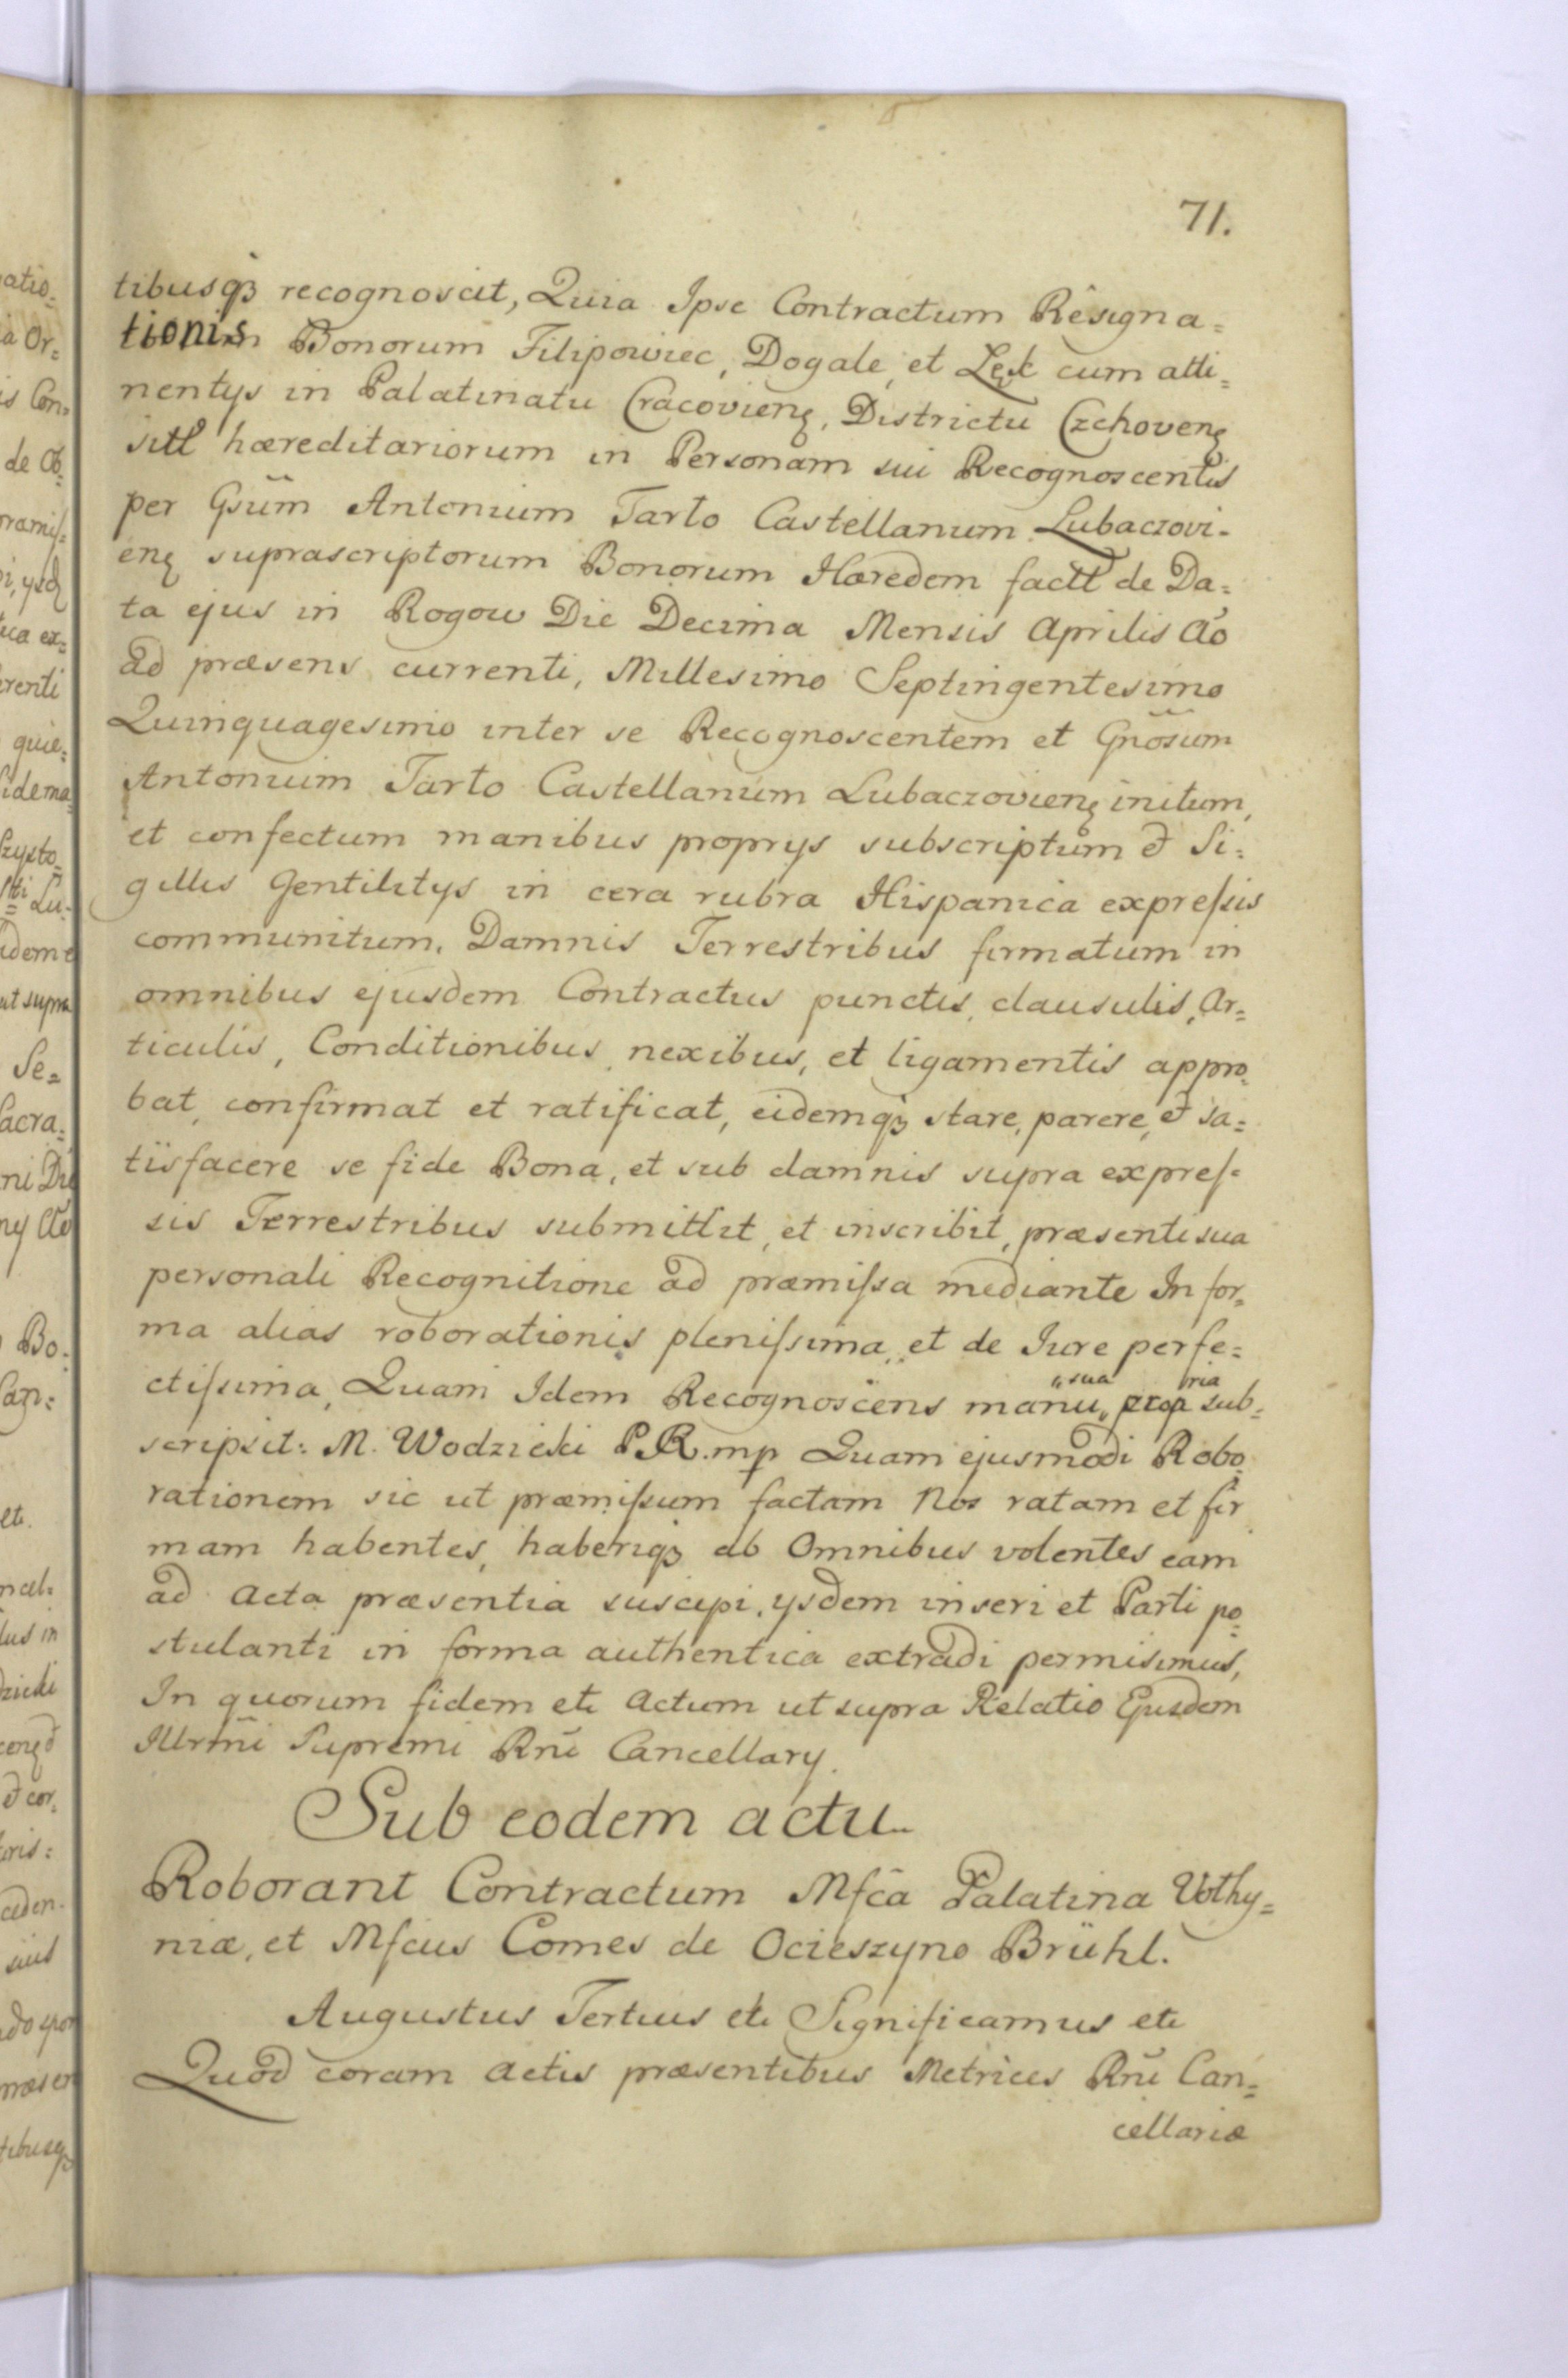 71.
tibusqꝫ recognoscit, Quia Ipse Contractum Resigna=
tionis Bonorum Filipowiec, Dogale, et Lęk cum atti=
nentys in Palatinatu Cracovienꝫ, Districtu Czchovenꝫ
sitł hæreditariorum in Personam sui Recognoscentis
per Gsum̃ Antonium Tarło Castellanum Lubaczovi-
enꝫ suprascriptorum Bonorum Hæredem factł de Da=
ta ejus in Rogow Die Decima Mensis Aprilis Ao
ad præsens currenti, Millesimo Septingentesimo
Quinquagesimo inter se Recognoscentem et Gnõsum
Antonium Tarło Castellanum Lubaczovienꝫ initum,
et confectum manibus proprys subscriptum & Si=
gillis Gentilitys in cera rubra Hispanica expreſsis
communitum, Damnis Terrestribus firmatum in
omnibus ejusdem Contractus punctis, clausulis, Ar=
ticulis, Conditionibus, nexibus, et ligamentis appro=
bat, confirmat et ratificat, eidemqꝫ stare, parere, & sa=
tisfacere se fide Bona, et sub damnis supra expreſ=
sis Terrestribus submittit, et inscribit, præsenti sua
personali Recognitione ad præmiſsa mediante In for=
ma alias roborationis pleniſsima, et de Jure perfe=
ctiſsima, Quam Idem Recognoscens manu „sua prop ria sub=
scripsit: M. Wodzicki P.R. mp Quam ejusmodi Robo=
rationem sic ut præmiſsum factam Nos ratam et fir
mam habentes, haberiqꝫ ab Omnibus volentes eam
ad Acta præsentia suscipi, ysdem inseri et Parti po=
stulanti in forma authentica extradi permisimus,
In quorum fidem etc Actum ut supra Relatio Ejusdem
Illrmi Supremi Rnĩ Cancellary.
Sub eodem actu
Roborant Contractum Mfca Palatina Volhy=
niæ, et Mfcus Comes de Ocieszyno Brühl.
Augustus Tertius etc Significamus etc
Quod coram Actis præsentibus Metrices Rnĩ Can=
cellariæ